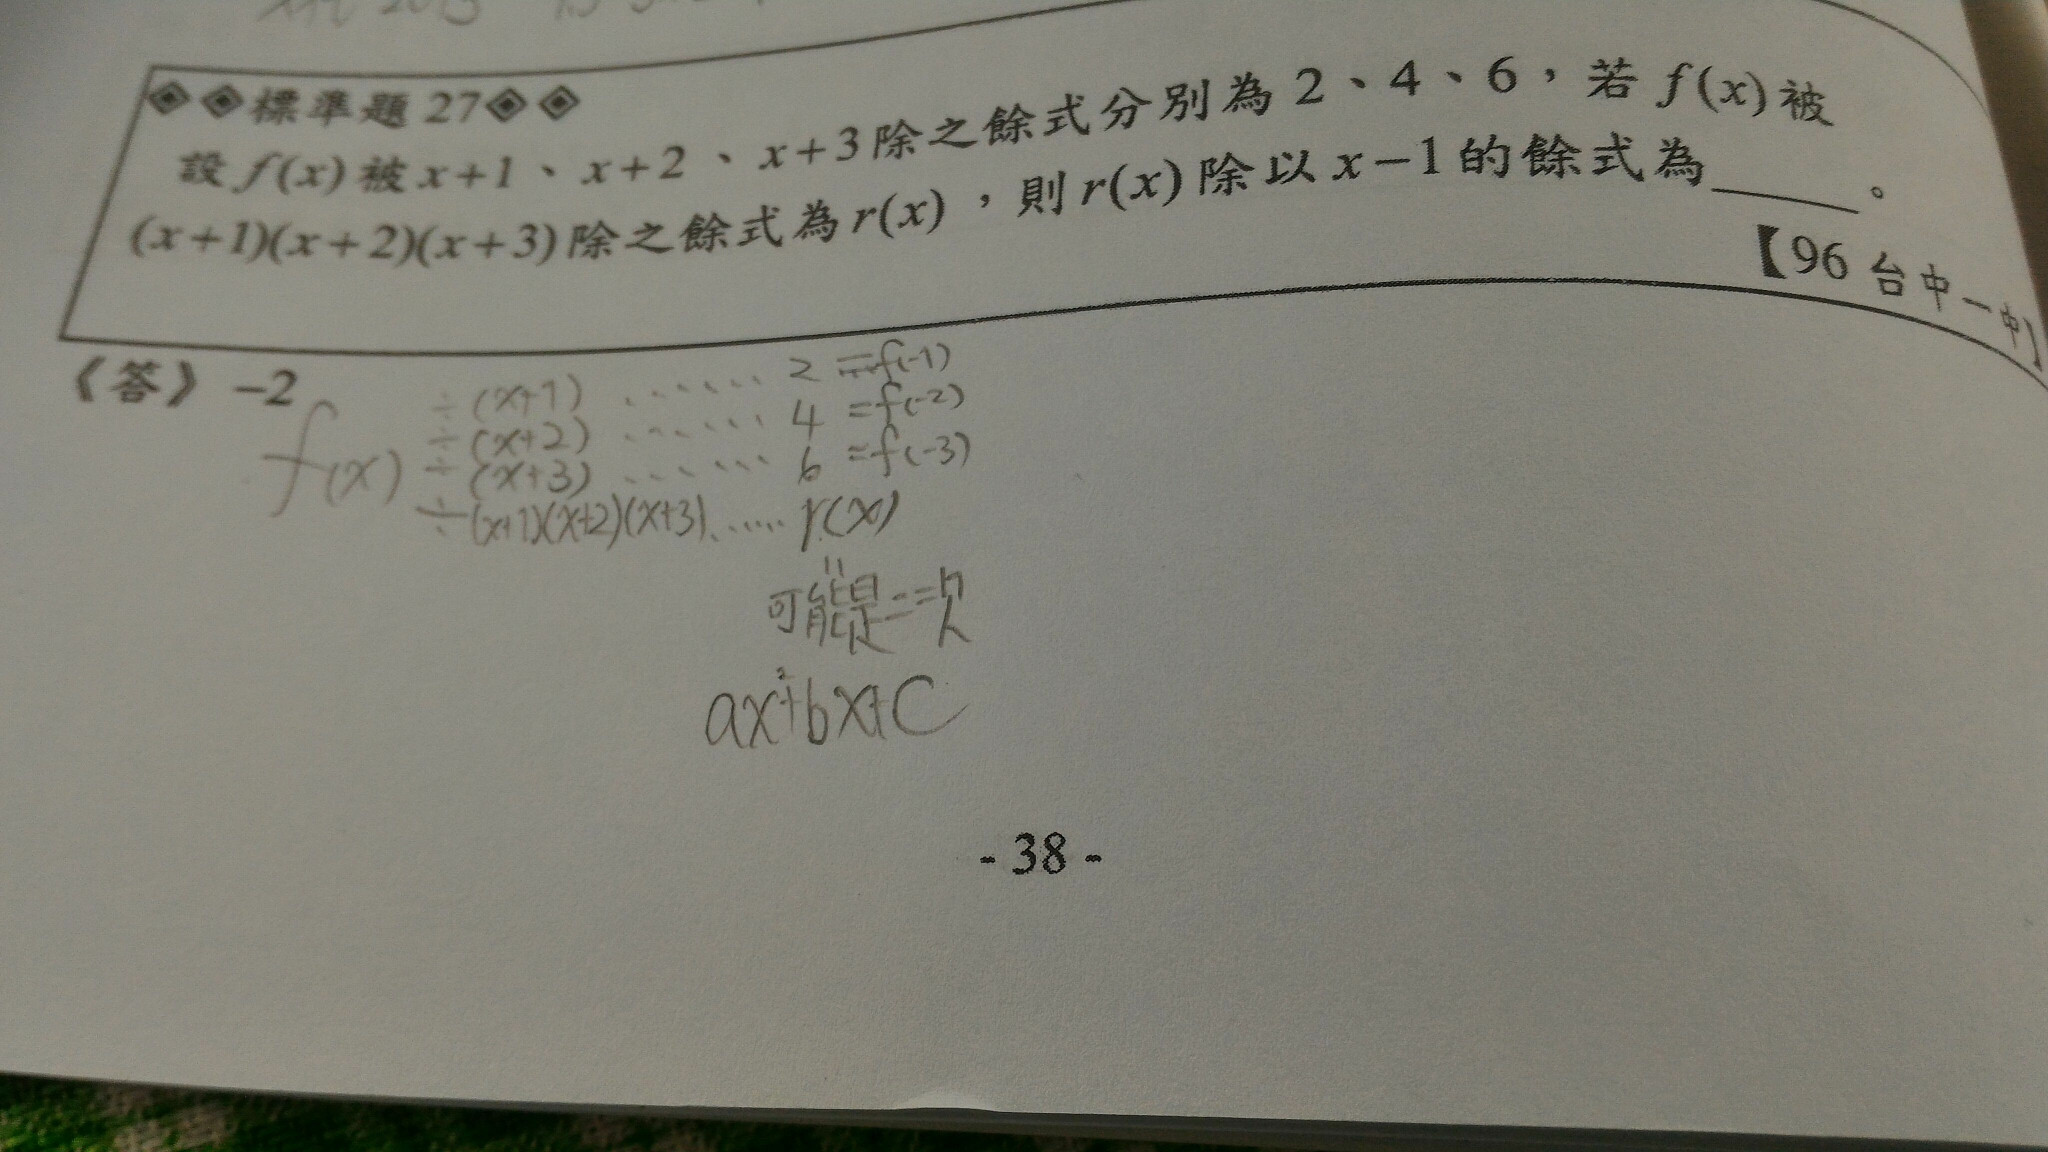 ◈◈標準題 27◈◈
設 f(x) 被 x+1、x+2、x+3 除之餘式分別為 2、4、6，若 f(x) 被
(x+1)(x+2)(x+3) 除之餘式為 r(x)，則 r(x) 除以 x−1 的餘式為______。
【96 台中一中】
《答》−2
÷(x+1) ...... 2 =f(-1)
÷(x+2) ...... 4 =f(-2)
f(x) ÷(x+3) ...... 6 =f(-3)
÷(x+1)(x+2)(x+3) ...... r(x)
可能是二次
ax²+bx+c
- 38 -